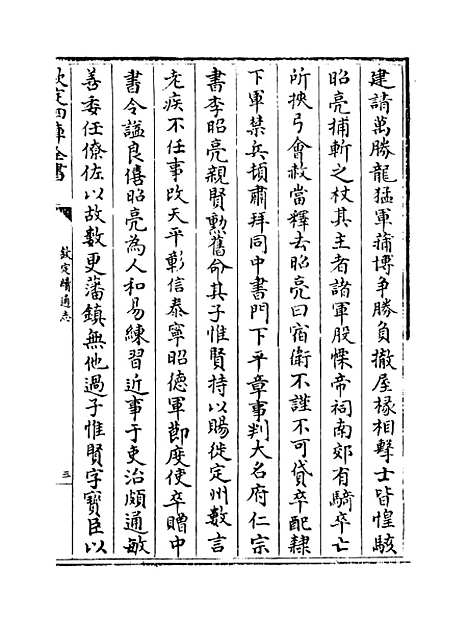 建請萬勝龍猛軍蒲博爭勝負撤屋椽相擊士皆惶駭
昭亮捕斬之杖其主者諸軍股慄帝祠南郊有騎卒亡
所挾弓會赦當釋去昭亮曰宿衛不謹不可貸卒配隸
下軍禁兵頓肅拜同中書門下平章事判大名府仁宗
書李昭亮親賢勲舊命其子惟賢持以賜徙定州數言
老疾不任事改天平彰信泰寧昭德軍節度使卒贈中
書令諡良僖昭亮為人和易練習近事于吏治頗通敏
善委任僚佐以故數更藩鎮無他過子惟賢字寶臣以
欽定四庫全書
欽定續通志
三